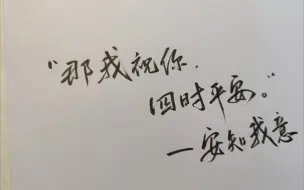 “那我祝你，
四时平安。”
—安知我意